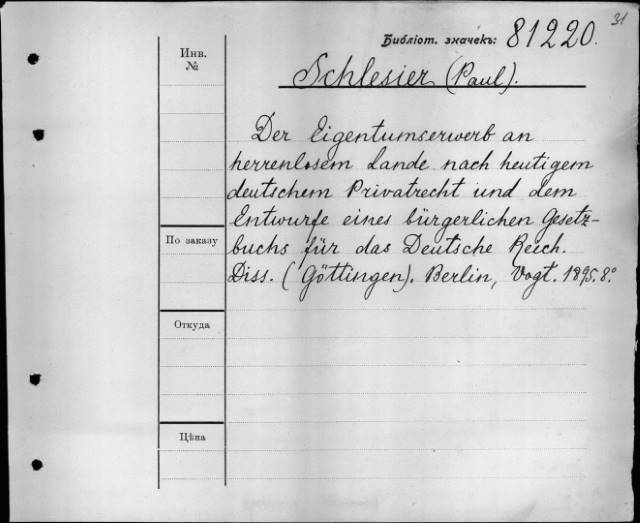 31
Библіот. значекъ: 81220.
Инв.
№
Schlesier (Paul).
Der Eigentumserwerb an
herrenlosem Lande nach heutigem
deutschem Privatrecht und dem
Entwurfe eines bürgerlichen Gesetz-
buchs für das Deutsche Reich.
Diss. (Göttingen). Berlin, Vogt. 1895. 8°
По заказу
Откуда
Цѣна